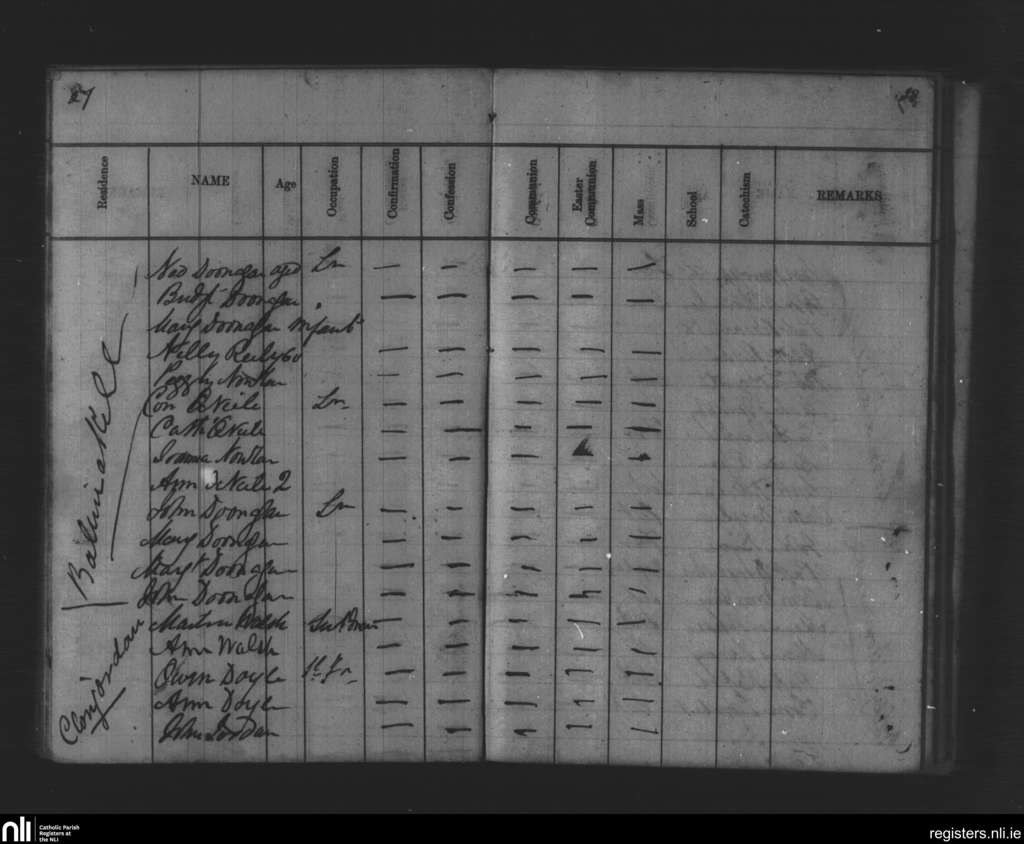 27
28
Residence NAME Age Occupation Confirmation Confession Communion Easter Communion Mass School Catechism REMARKS
Ballinakill
Ned Doongan aged Lr
Bridgt Doongan
Mary Doongan infant
Nelly Reily 60
Peggy Nowlan
Con ONeile Lr
Cath ONeile
Joanna Nowlan
Ann ONeile 2
John Doongan Lr
Mary Doongan
Margt Doongan
John Doongan
Clonjordan
Martin Walsh
Ann Walsh
Owen Doyle
Ann Doyle
John Jordan
nli Catholic Parish
Registers at
the NLI
registers.nli.ie